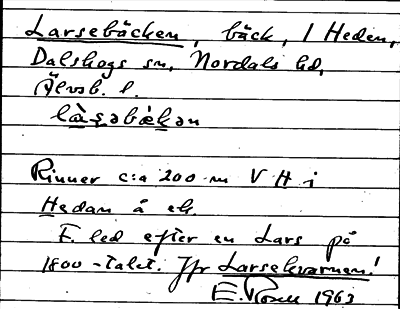 Larsebäcken, bäck, 1 Heden,
Dalskogs sn, Nordals hd,
Älvsb. l.
Rinner c:a 200 m V H i
Hedan å ek.
F. led efter en Lars på
1800-talet. Jfr Larsekvarnen!
E. Rosell 1963